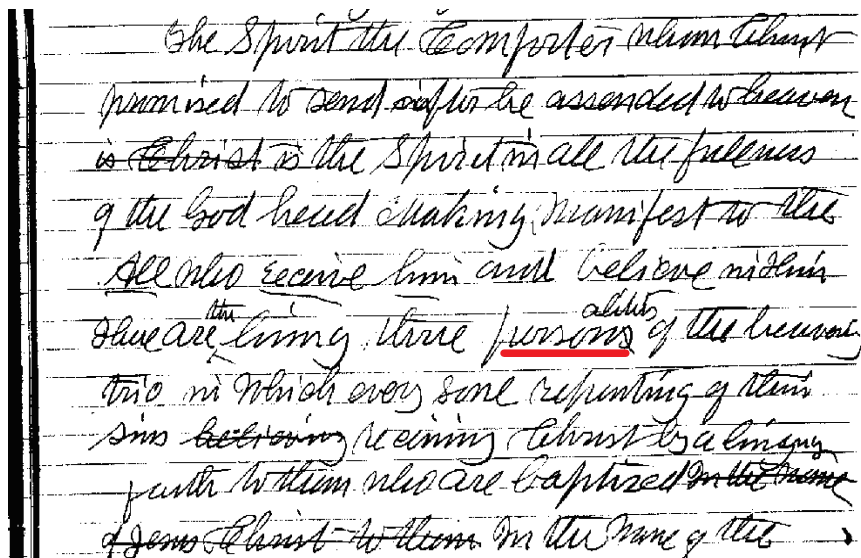 The Spirit the Comforter whom Christ
promised to send after he assended to heaven
is Christ is the Spirit in all the fulness
of the God head making manifest to the
All who receive him and believe in Him
There are the living three personsalities of the heavenly
trio in which every sone repenting of their
sins believing receiving Christ by a living
faith to them who are baptized in the name
of Jesus Christ to them in the name of the